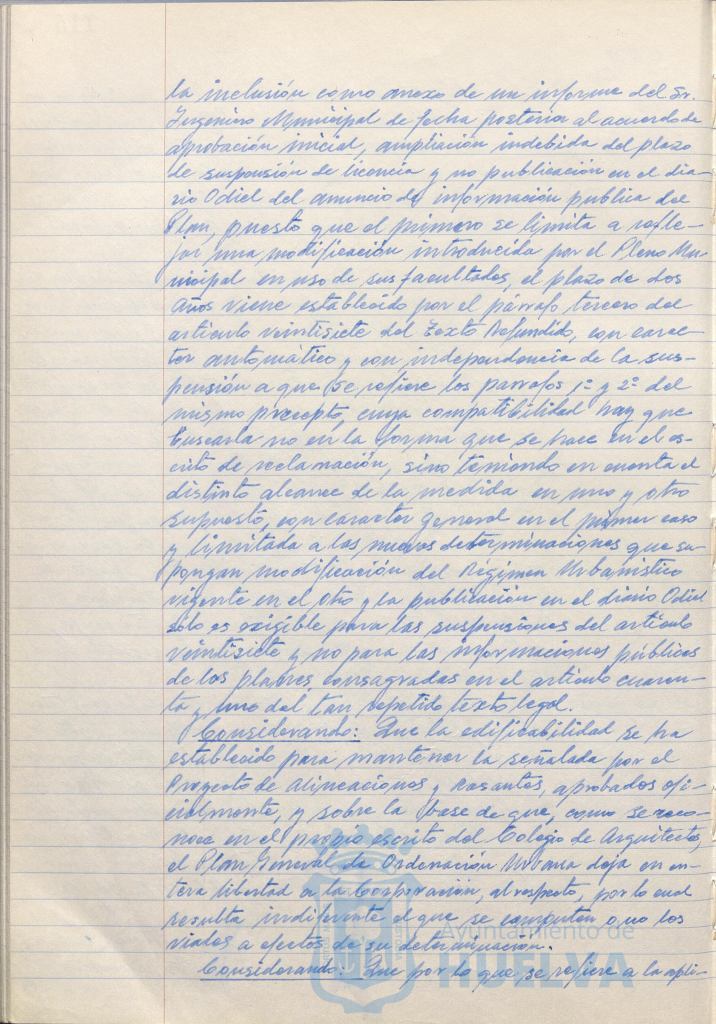 la inclusión como anexo de un informe del Sr.
Ingeniero Municipal de fecha posterior al acuerdo de
aprobación inicial, ampliación indebida del plazo
de suspensión de licencia y no publicación en el dia-
rio Odiel del anuncio de información publica del
Plan, puesto que el primero se limita a refle-
jar una modificación introducida por el Pleno Mu-
nicipal en uso de sus facultades, el plazo de dos
años viene establecido por el párrafo tercero del
articulo veintisiete del Texto Refundido, con carac-
ter automático y con independencia de la sus-
pensión a que se refiere los parrafos 1º y 2º del
mismo precepto, cuya compatibilidad hay que
buscarla no en la forma que se hace en el es-
crito de reclamación, sino teniendo en cuenta el
distinto alcance de la medida en uno y otro
supuesto, con caracter general en el primer caso
y limitada a las nuevas determinaciones que su-
pongan modificación del Régimen Urbanistico
vigente en el otro y la publicación en el diario Odiel
solo es exigible para las suspensiones del articulo
veintisiete y no para las informaciones públicas
de los planes, consagradas en el articulo cuaren-
ta y uno del tan repetido texto legal.
Considerando: Que la edificabilidad se ha
establecido para mantener la señalada por el
Proyecto de Alineaciones y rasantes, aprobados ofi-
cialmente, y sobre la base de que, como se reco-
noce en el propio escrito del Colegio de Arquitectos,
el Plan General de Ordenación Urbana deja en en-
tera libertad a la Corporación, al respecto, por lo cual
resulta indiferente el que se computen o no los
viales a efectos de su determinación.
Considerando: Que por lo que se refiere a la apli-
Ayuntamiento de
HUELVA